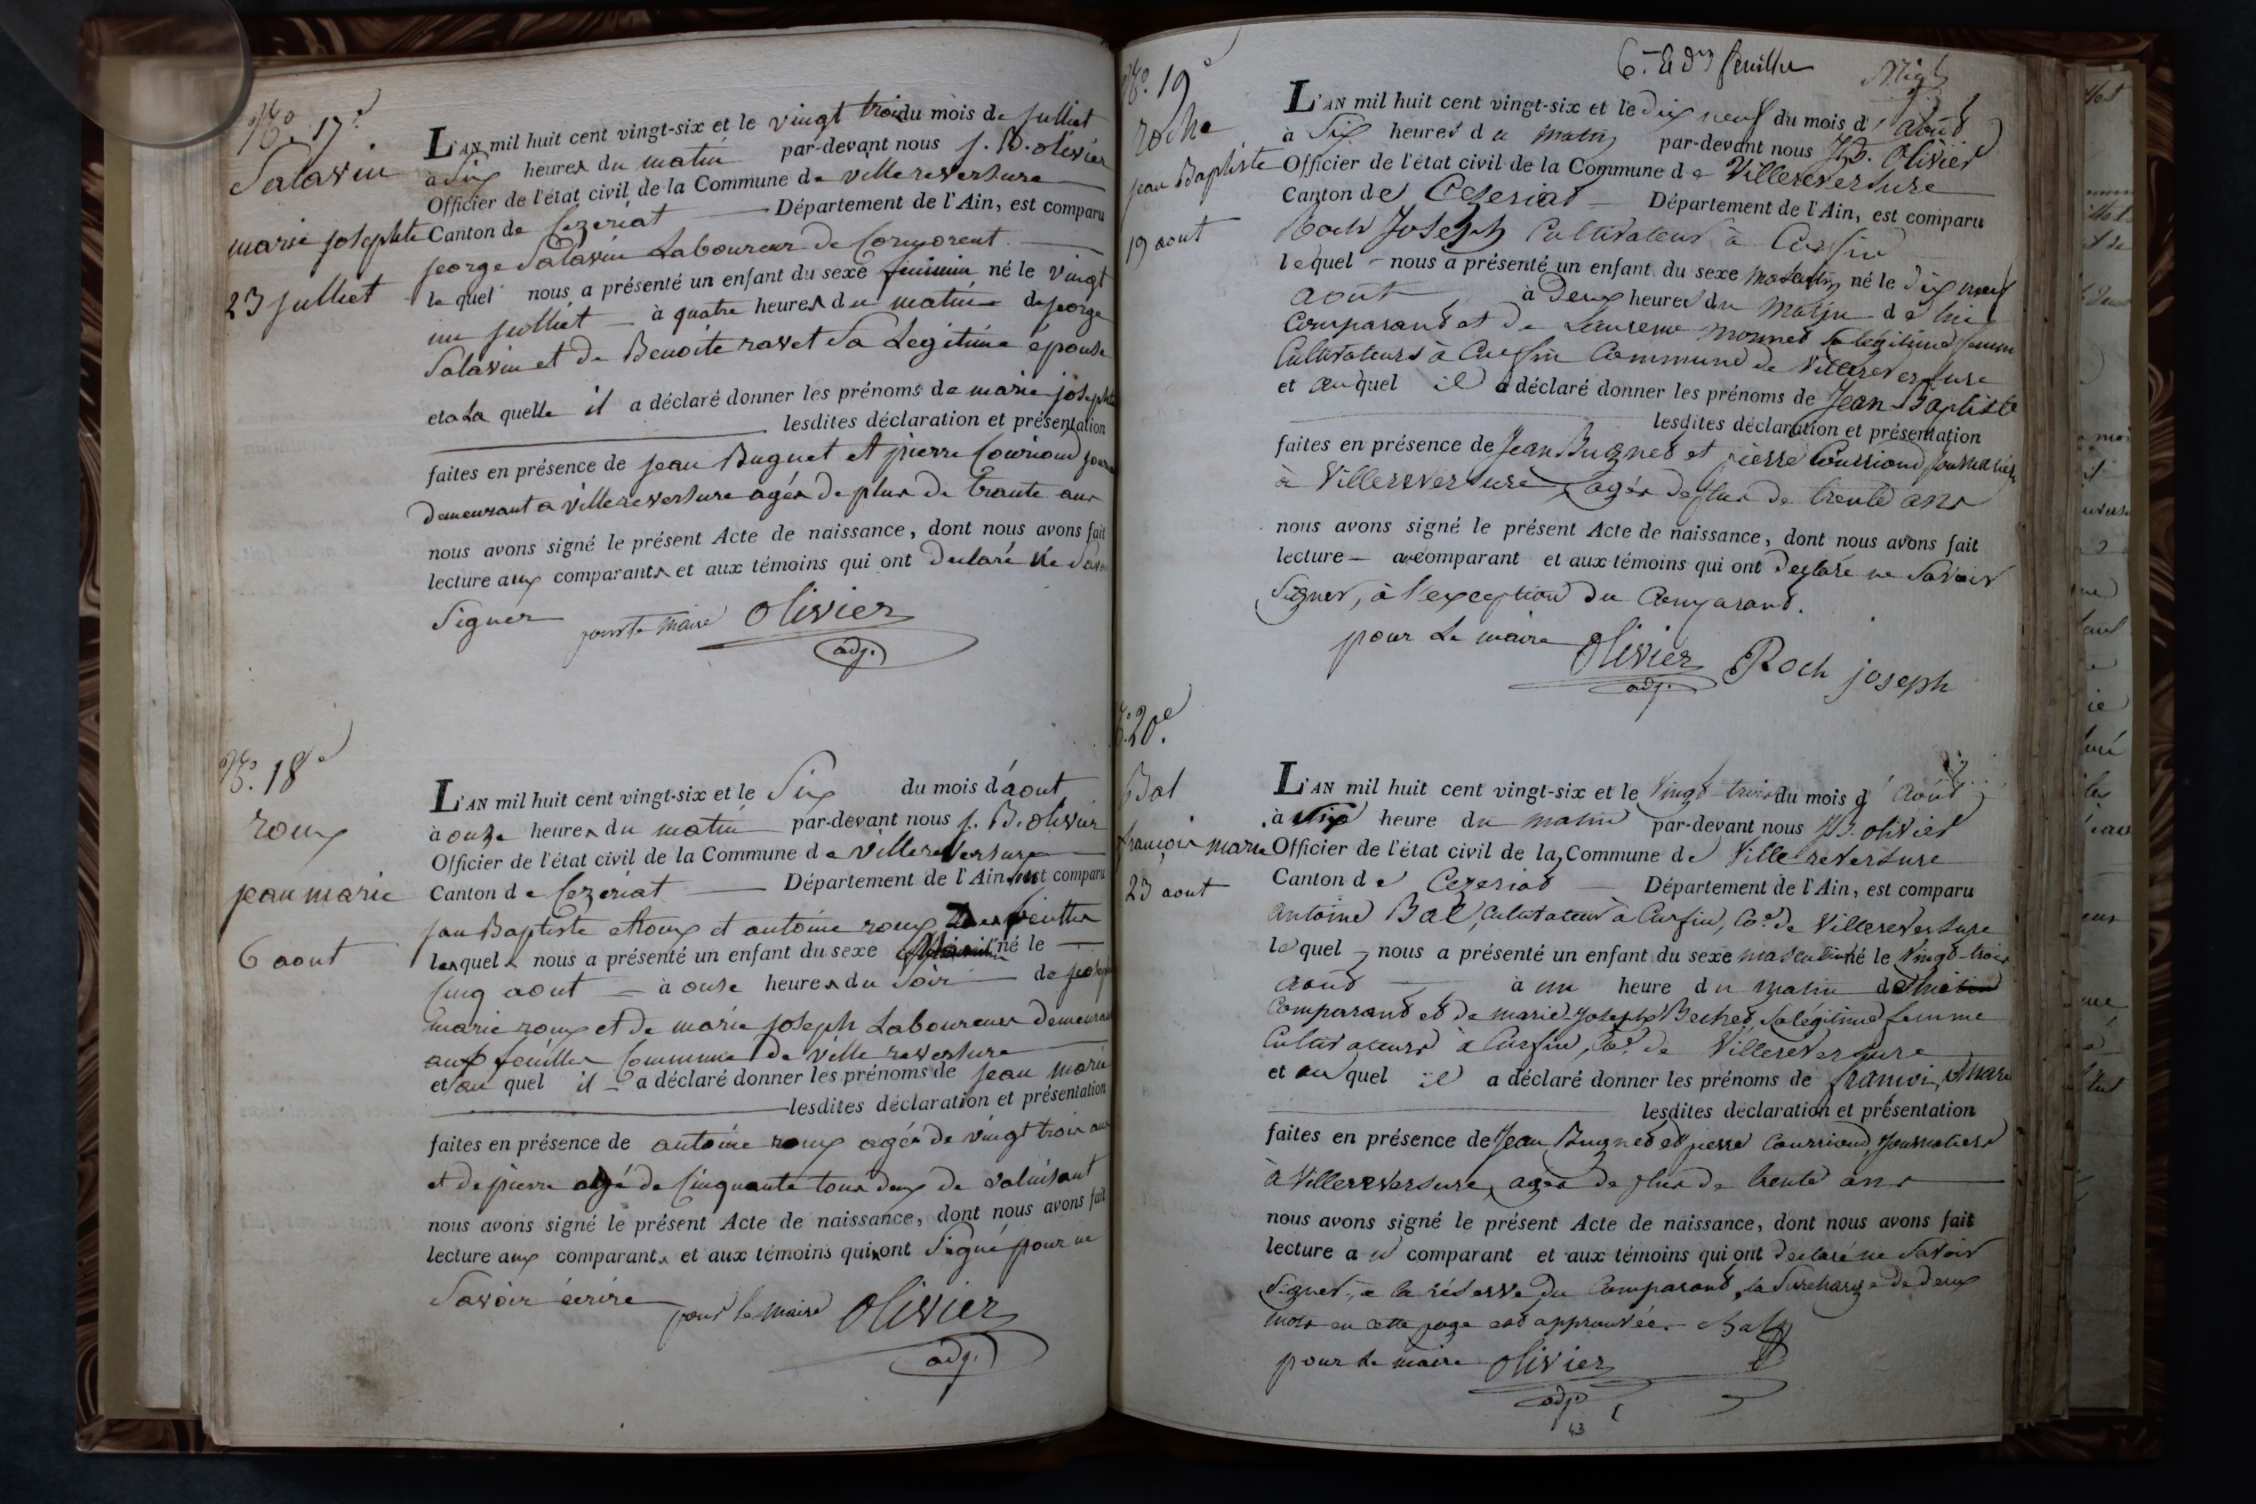 No. 17e
Salavin
marie josephte
23 julliet
L'AN mil huit cent vingt-six et le vingt trois du mois de julliet
à Six heures du matin par-devant nous j. B. olivier
Officier de l'état civil de la Commune de villereversure
Canton de Cezeriat Département de l'Ain, est comparu
jeorge Salavin Laboureur de Cormorent
le quel nous a présenté un enfant du sexe féminin né le vingt
un julliet à quatre heures du matin de jeorge
Salavin et de Benoite ravet Sa Legitime épouse
et a La quelle il a déclaré donner les prénoms de marie josephte
lesdites déclaration et présentation
faites en présence de jean Buguet et pierre Couriond
demeurant a villereversure agés de plus de trante ans
nous avons signé le présent Acte de naissance, dont nous avons fait
lecture aux comparants et aux témoins qui ont declaré ne Savoir
Signer
pour le maire olivier
adj.
No. 18e
roux
jean marie
6 aout
L'AN mil huit cent vingt-six et le Six du mois d'aout
à onze heures du matin par-devant nous j. B. olivier
Officier de l'état civil de la Commune de villereversure
Canton de Cezeriat Département de l'Ain, est comparu
jan Baptiste Roux et antoine roux
lesquels nous a présenté un enfant du sexe né le
Cinq aout à onse heures du Soir de joseph
marie roux et de marie joseph Laboureurs demeurant
aux feuilles Commune de ville reversure
et au quel il a déclaré donner les prénoms de jean marie
lesdites déclaration et présentation
faites en présence de antoine roux agés de vingt trois ans
et de pierre agé de Cinquante tous deux de
nous avons signé le présent Acte de naissance, dont nous avons fait
lecture aux comparants et aux témoins qui ont Signé pour ne
Savoir écrire
pour le maire olivier
adj.
6e et der feuillet
No. 19e
roche
jean Baptiste
19 aout
L'AN mil huit cent vingt-six et le dix neuf du mois d'août
à Six heures du matin par-devant nous JB. Olivier
Officier de l'état civil de la Commune de Villereversure
Canton de Cezeriat Département de l'Ain, est comparu
Roch Joseph Cultivateur à Cusfin
lequel nous a présenté un enfant du sexe masculin né le dix neuf
août à Deux heures du matin de lui
Comparant et de Laurence monnet Sa légitime femme
Cultivateurs à Cusfin Commune de Villereversure
et au quel il a déclaré donner les prénoms de Jean Baptiste
lesdites déclaration et présentation
faites en présence de Jean Bugnet et pierre Courriond journaliers
à Villereversure, agés de plus de trente ans
nous avons signé le présent Acte de naissance, dont nous avons fait
lecture au comparant et aux témoins qui ont déclaré ne Savoir
Signer, à l'exception du Comparant.
pour Le maire Olivier Roch joseph
adj.
No. 20e
Bal
françois marie
23 aout
L'AN mil huit cent vingt-six et le vingt-trois du mois d'août
à Six heure du matin par-devant nous JB. olivier
Officier de l'état civil de la Commune de Villereversure
Canton de Cezeriat Département de l'Ain, est comparu
antoine Bal, Cultivateur à Cusfin, Cne de Villereversure
lequel nous a présenté un enfant du sexe masculin né le vingt-trois
août à un heure du matin de lui
Comparant et de marie Josephe Bechet Sa légitime femme
Cultivateurs à Cusfin, Cne de Villereversure
et au quel il a déclaré donner les prénoms de françois marie
lesdites déclaration et présentation
faites en présence de Jean Bugnet et pierre Courriond, journaliers
à Villereversure, agés de plus de trente ans
nous avons signé le présent Acte de naissance, dont nous avons fait
lecture au comparant et aux témoins qui ont déclaré ne Savoir
Signer, à la réserve du Comparant, la Surcharge de deux
mots en cette page est approuvée. Bal
pour le maire olivier
adj.
43